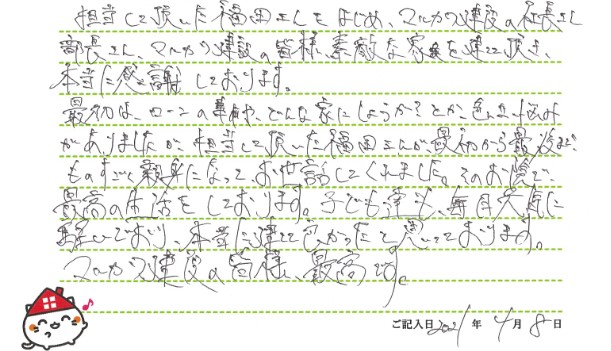 担当して頂いた福田さんをはじめ、マルカワ建設の社長さん
部長さん、マルカワ建設の皆様、素敵な家を建てて頂き、
本当に感謝しております。
最初は、ローンの事や、どんな家にしようか?とか、色々悩み
がありましたが、担当して頂いた福田さんが最初から最後まで
ものすごく親身になってお世話してくれました。そのお陰で、
最高の生活をしております。子ども達も、毎日元気に
おり、本当に建ててよかったと思っております。
マルカワ建設の皆様、最高です。
ご記入日 2021年 4月 8日